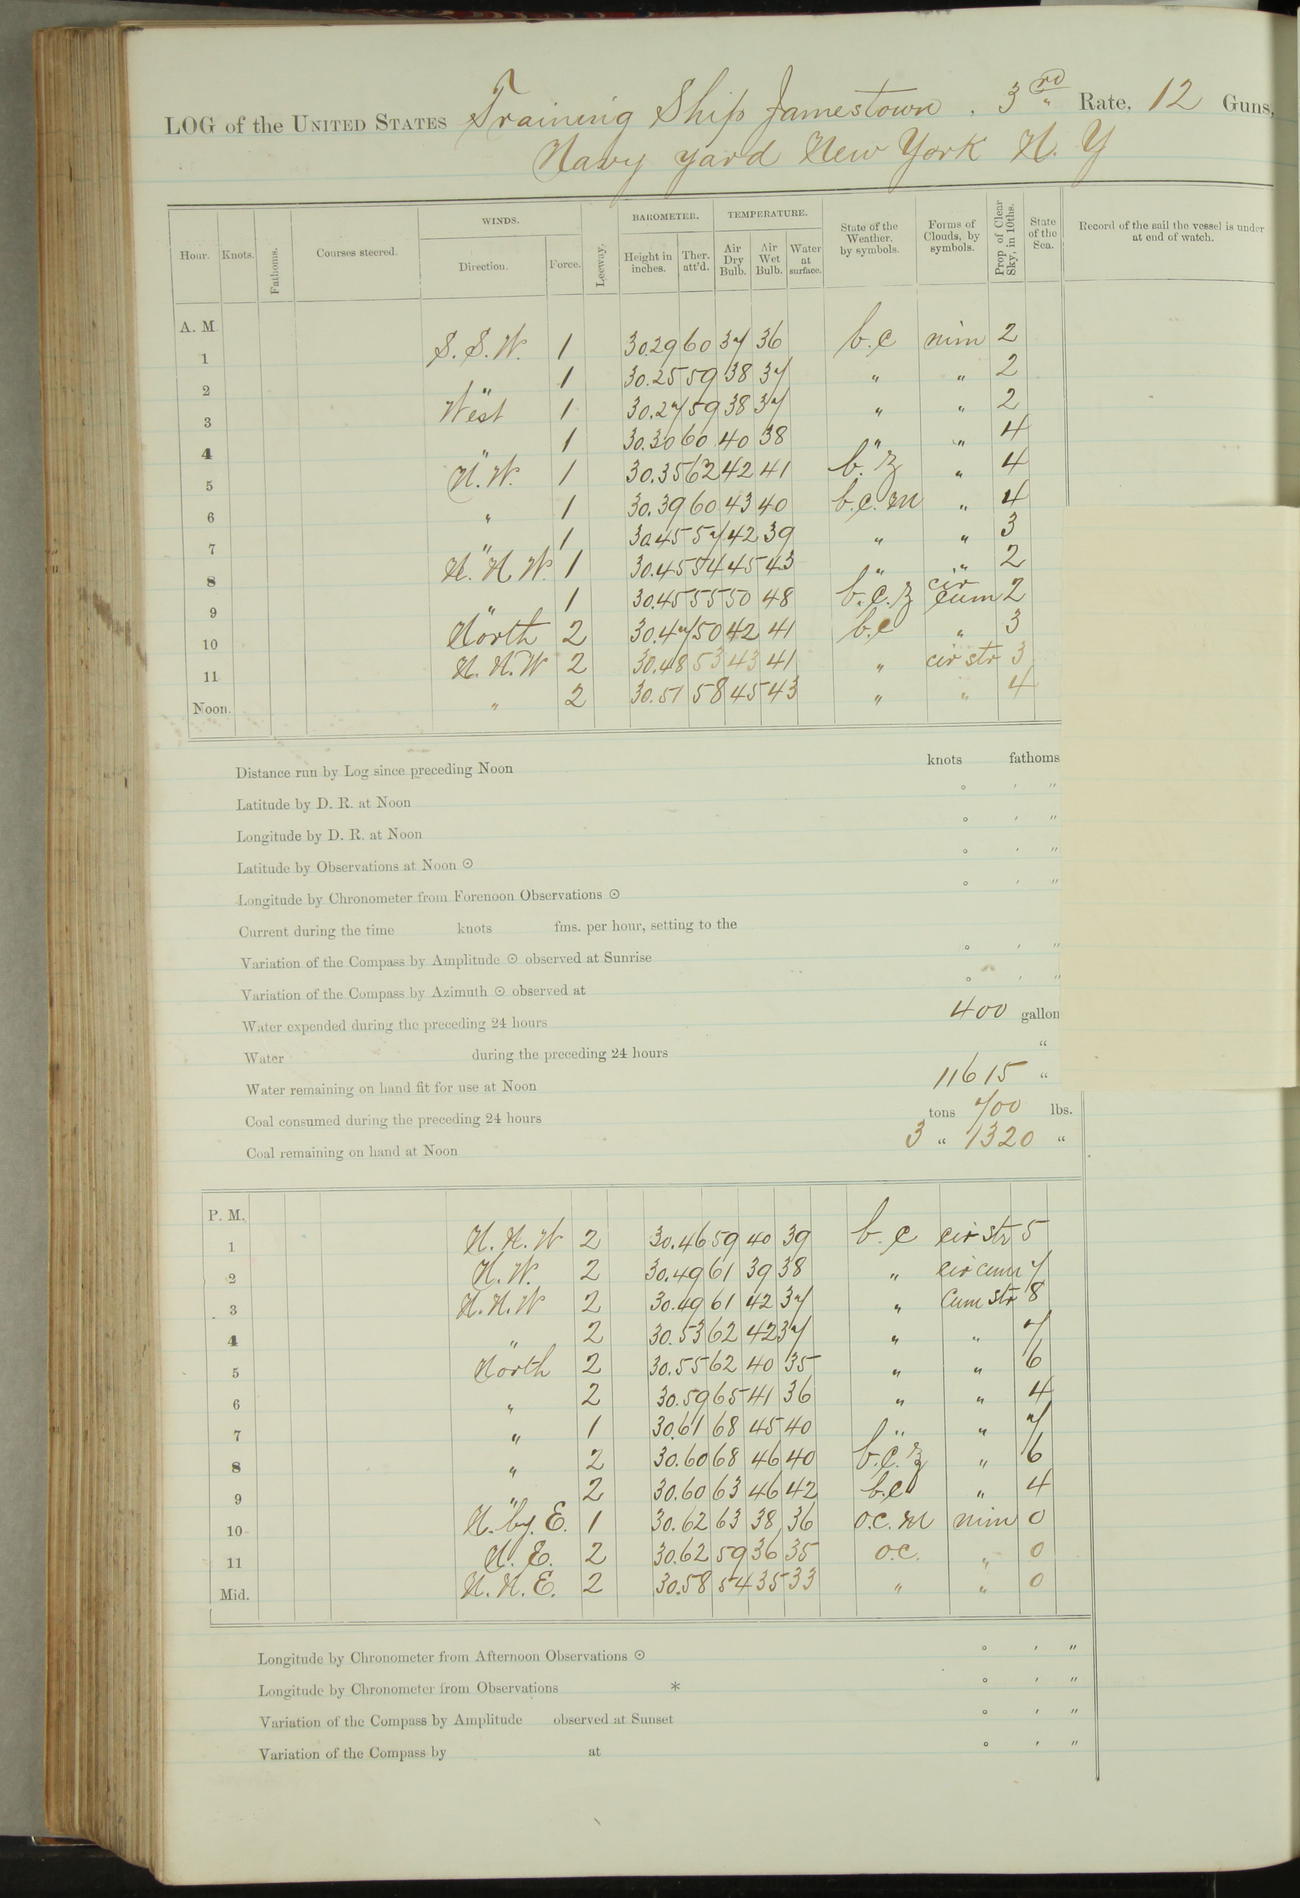 LOG of the UNITED STATES Training Ship Jamestown. 3rd Rate, 12 Guns,
Navy yard New York N. Y
Hour. Knots. Fathoms. Courses steered. WINDS. Direction. Force. Leeway. BAROMETER. Height in inches. Ther. att'd. TEMPERATURE. Air Dry Bulb. Air Wet Bulb. Water at surface. State of the Weather, by symbols. Forms of Clouds, by symbols. Prop. of Clear Sky, in 10ths. State of the Sea. Record of the sail the vessel is under at end of watch.
A. M.
1 S. S. W. 1 30.29 60 37 36 b.c nim 2
2 " 1 30.25 59 38 37 " " 2
3 West 1 30.27 59 38 37 " " 2
4 " 1 30.30 60 40 38 " " 4
5 N. W. 1 30.35 62 42 41 b. z " 4
6 " 1 30.39 60 43 40 b.c.m " 4
7 " 1 30.45 57 42 39 " " 3
8 N. N. W. 1 30.45 54 45 43 " " 2
9 " 1 30.45 55 50 48 b.c.z cir cum 2
10 North 2 30.47 50 42 41 b.c " 3
11 N. N. W 2 30.48 53 43 41 " cir str 3
Noon. " 2 30.51 58 45 43 " " 4
Distance run by Log since preceding Noon knots fathoms
Latitude by D. R. at Noon ° ' "
Longitude by D. R. at Noon ° ' "
Latitude by Observations at Noon ☉ ° ' "
Longitude by Chronometer from Forenoon Observations ☉ ° ' "
Current during the time knots fms. per hour, setting to the
Variation of the Compass by Amplitude ☉ observed at Sunrise ° ' "
Variation of the Compass by Azimuth ☉ observed at ° ' "
Water expended during the preceding 24 hours 400 gallon
Water during the preceding 24 hours "
Water remaining on hand fit for use at Noon 11615 "
Coal consumed during the preceding 24 hours tons 700 lbs.
Coal remaining on hand at Noon 3 " 1320 "
P. M.
1 N. N. W 2 30.46 59 40 39 b.c cir str 5
2 N. W. 2 30.49 61 39 38 " cir cum 7
3 N. N. W 2 30.49 61 42 37 " Cum str 8
4 " 2 30.53 62 42 37 " " 7
5 North 2 30.55 62 40 35 " " 6
6 " 2 30.59 65 41 36 " " 4
7 " 1 30.61 68 45 40 " " 7
8 " 2 30.60 68 46 40 b.c.z " 6
9 " 2 30.60 63 46 42 b.c " 4
10 N. by. E. 1 30.62 63 38 36 o.c.m nim 0
11 N. E. 2 30.62 59 36 35 o.c. " 0
Mid. N. N. E. 2 30.58 54 35 33 " " 0
Longitude by Chronometer from Afternoon Observations ☉ ° ' "
Longitude by Chronometer from Observations * ° ' "
Variation of the Compass by Amplitude observed at Sunset ° ' "
Variation of the Compass by at ° ' "